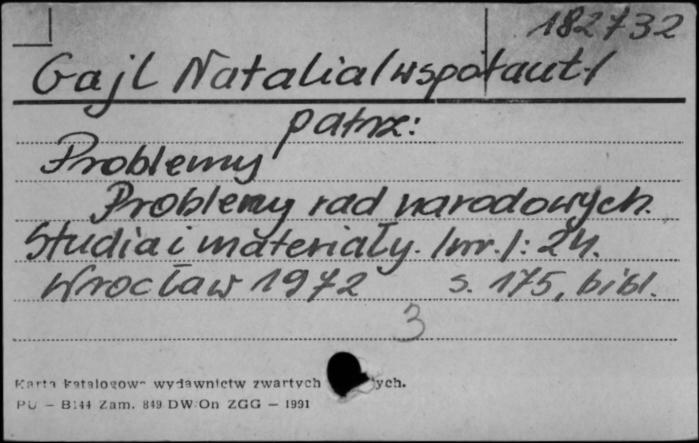 182732
Gajl Natalia /współaut./
patrz:
Problemy
Problemy rad narodowych.
Studia i materiały. /nr./: 24.
Wrocław 1972 s. 175, bibl.
3
Karta katalogowa wydawnictw zwartych ych.
PU - B144 Zam. 849 DW/On ZGG - 1991